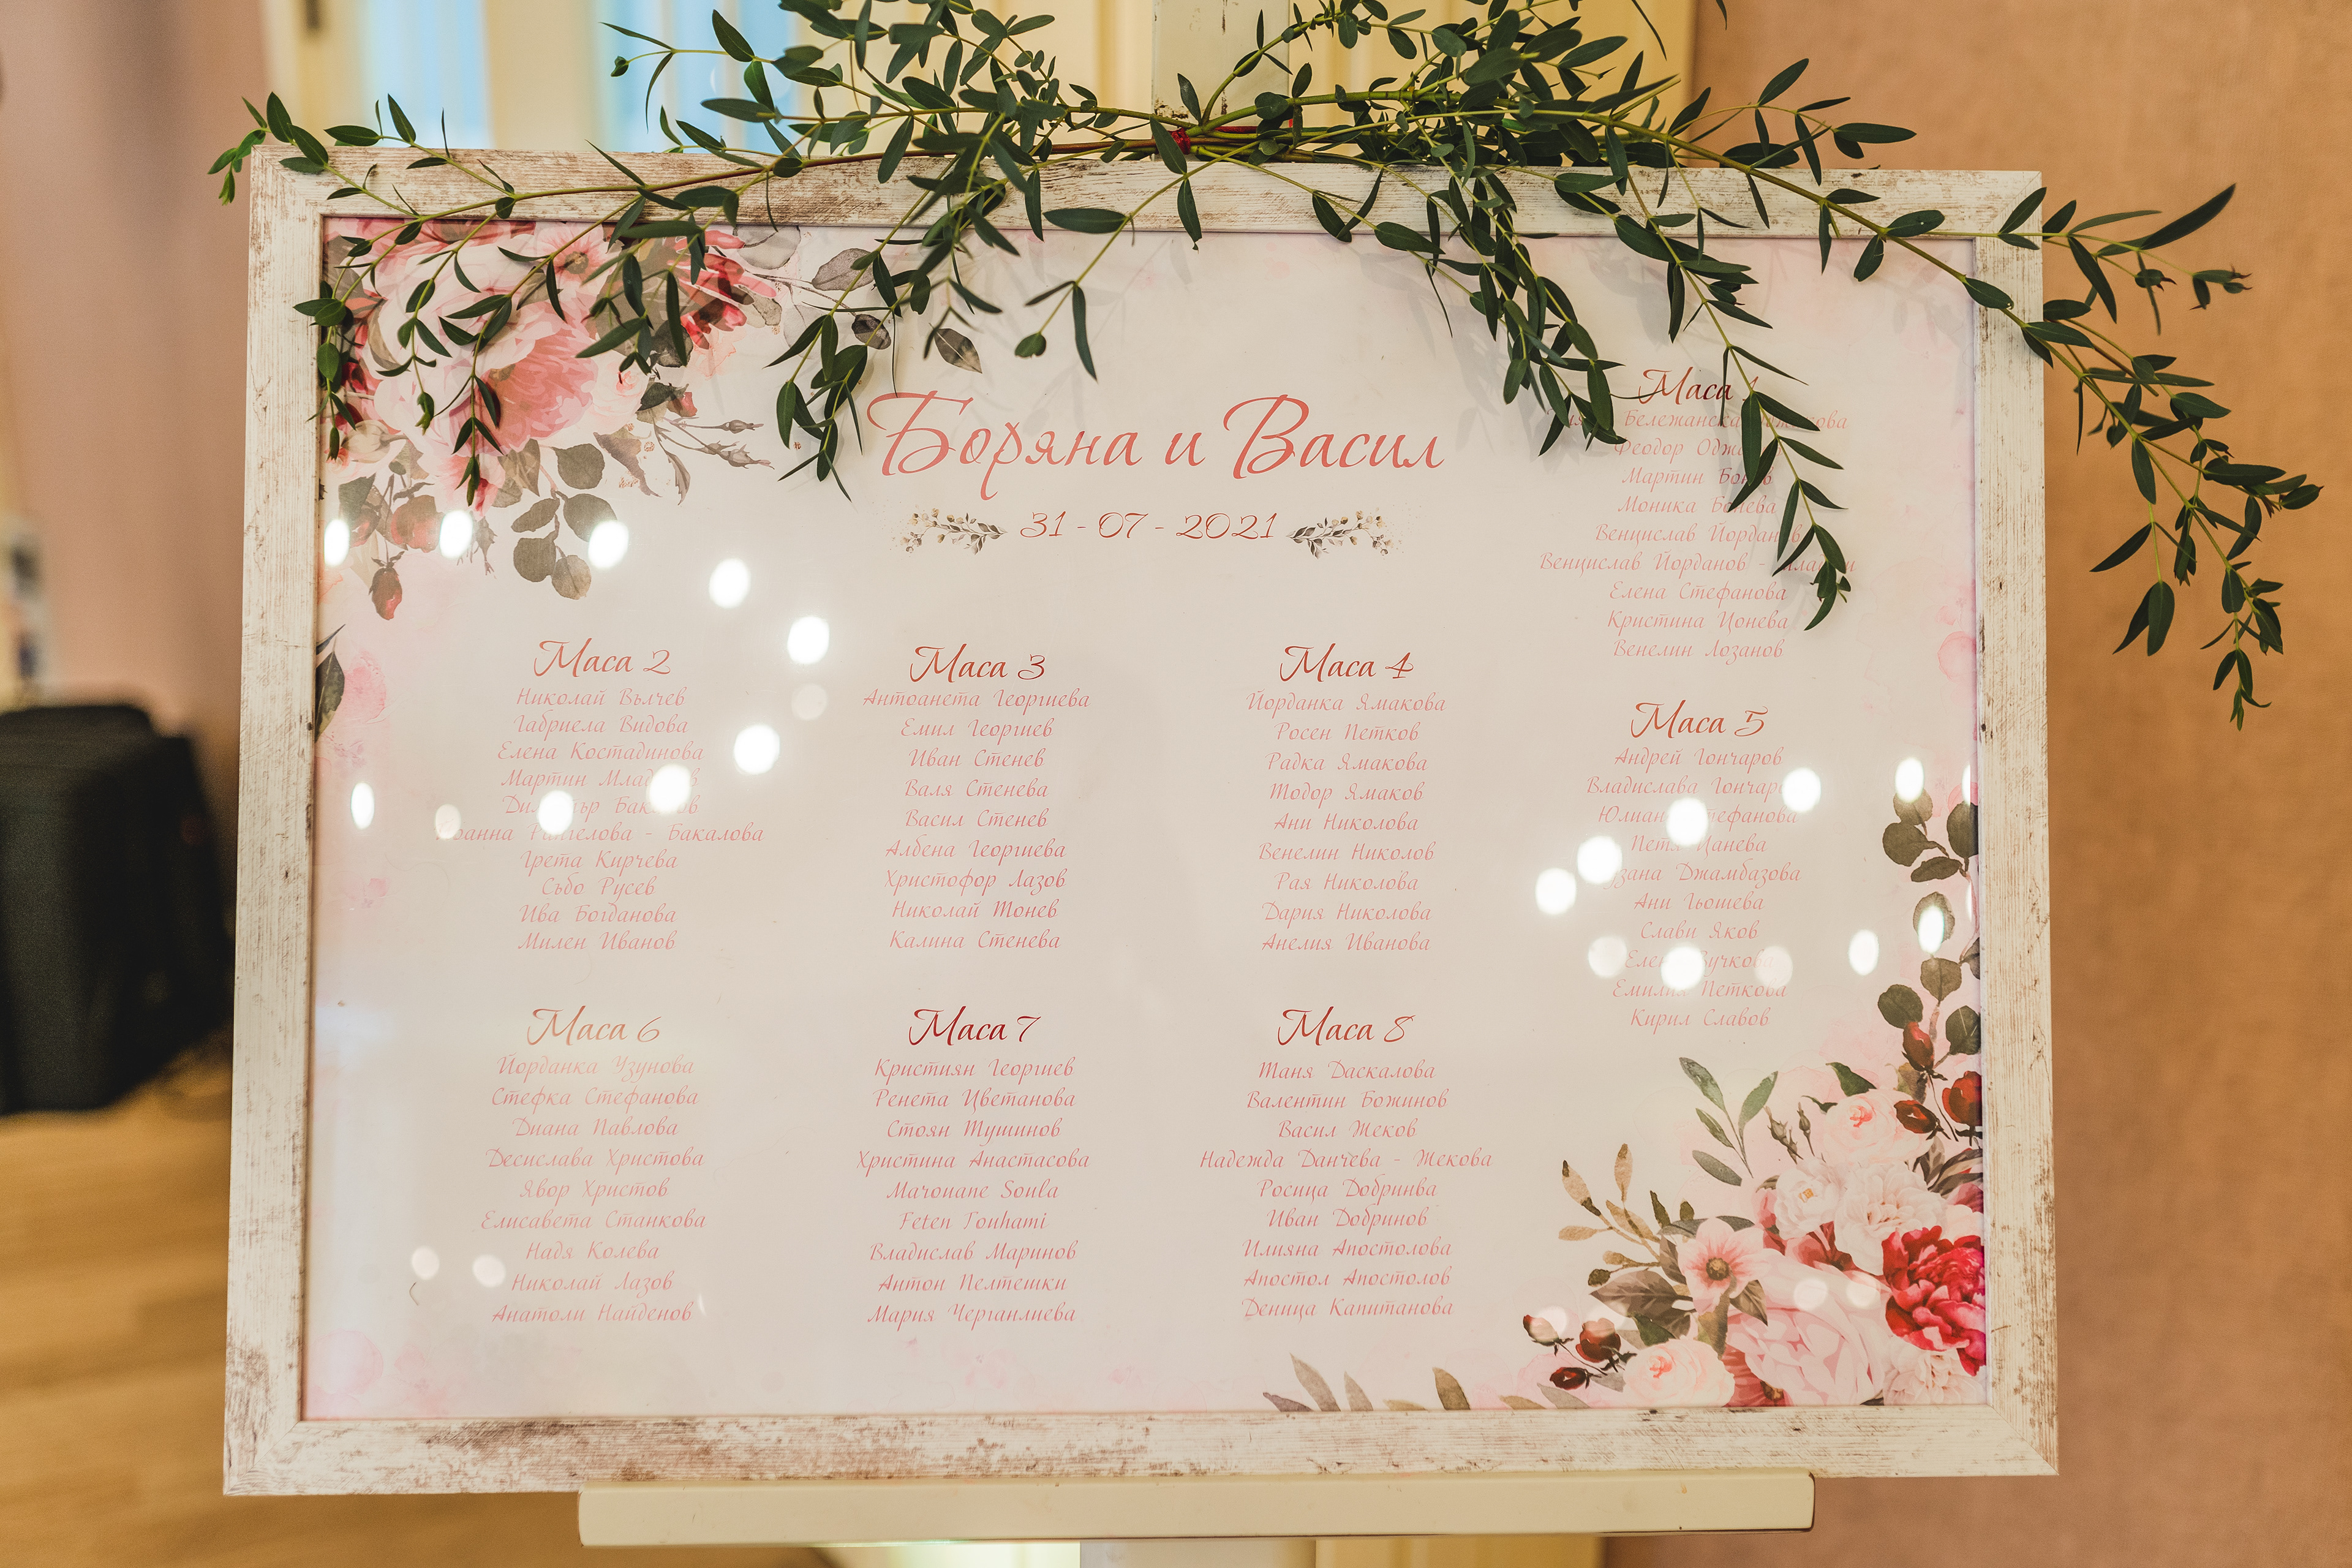 Боряна и Васил
31 - 07 - 2021
Маса 1
Бележанска
Феодор
Мартин
Моника Бонева
Венцислав Йорданов
Венцислав Йорданов -
Елена Стефанова
Кристина Цонева
Венелин Лозанов
Маса 2
Николай Вълчев
Габриела Видова
Елена Костадинова
Мартин
Рангелова - Бакалова
Грета Кирчева
Събо Русев
Ива Богданова
Милен Иванов
Маса 3
Антоанета Георгиева
Емил Георгиев
Иван Стенев
Валя Стенева
Васил Стенев
Албена Георгиева
Христофор Лазов
Николай Тонев
Калина Стенева
Маса 4
Йорданка Ямакова
Росен Петков
Радка Ямакова
Тодор Ямаков
Ани Николова
Венелин Николов
Рая Николова
Дария Николова
Анелия Иванова
Маса 5
Андрей Гончаров
Владислава
Стефанова
Петя Цанева
Джамбазова
Ани Гьошева
Слави Яков
Вучкова
Емилия Петкова
Кирил Славов
Маса 6
Йорданка Узунова
Стефка Стефанова
Диана Павлова
Десислава Христова
Явор Христов
Елисавета Станкова
Надя Колева
Николай Лазов
Анатоли Найденов
Маса 7
Кристиян Георгиев
Ренета Цветанова
Стоян Тушинов
Христина Анастасова
Marouane Soula
Feten Touhami
Владислав Маринов
Антон Пелтешки
Мария Черганлиева
Маса 8
Таня Даскалова
Валентин Божинов
Васил Жеков
Надежда Данчева - Жекова
Росица Добринва
Иван Добринов
Илияна Апостолова
Апостол Апостолов
Деница Капитанова